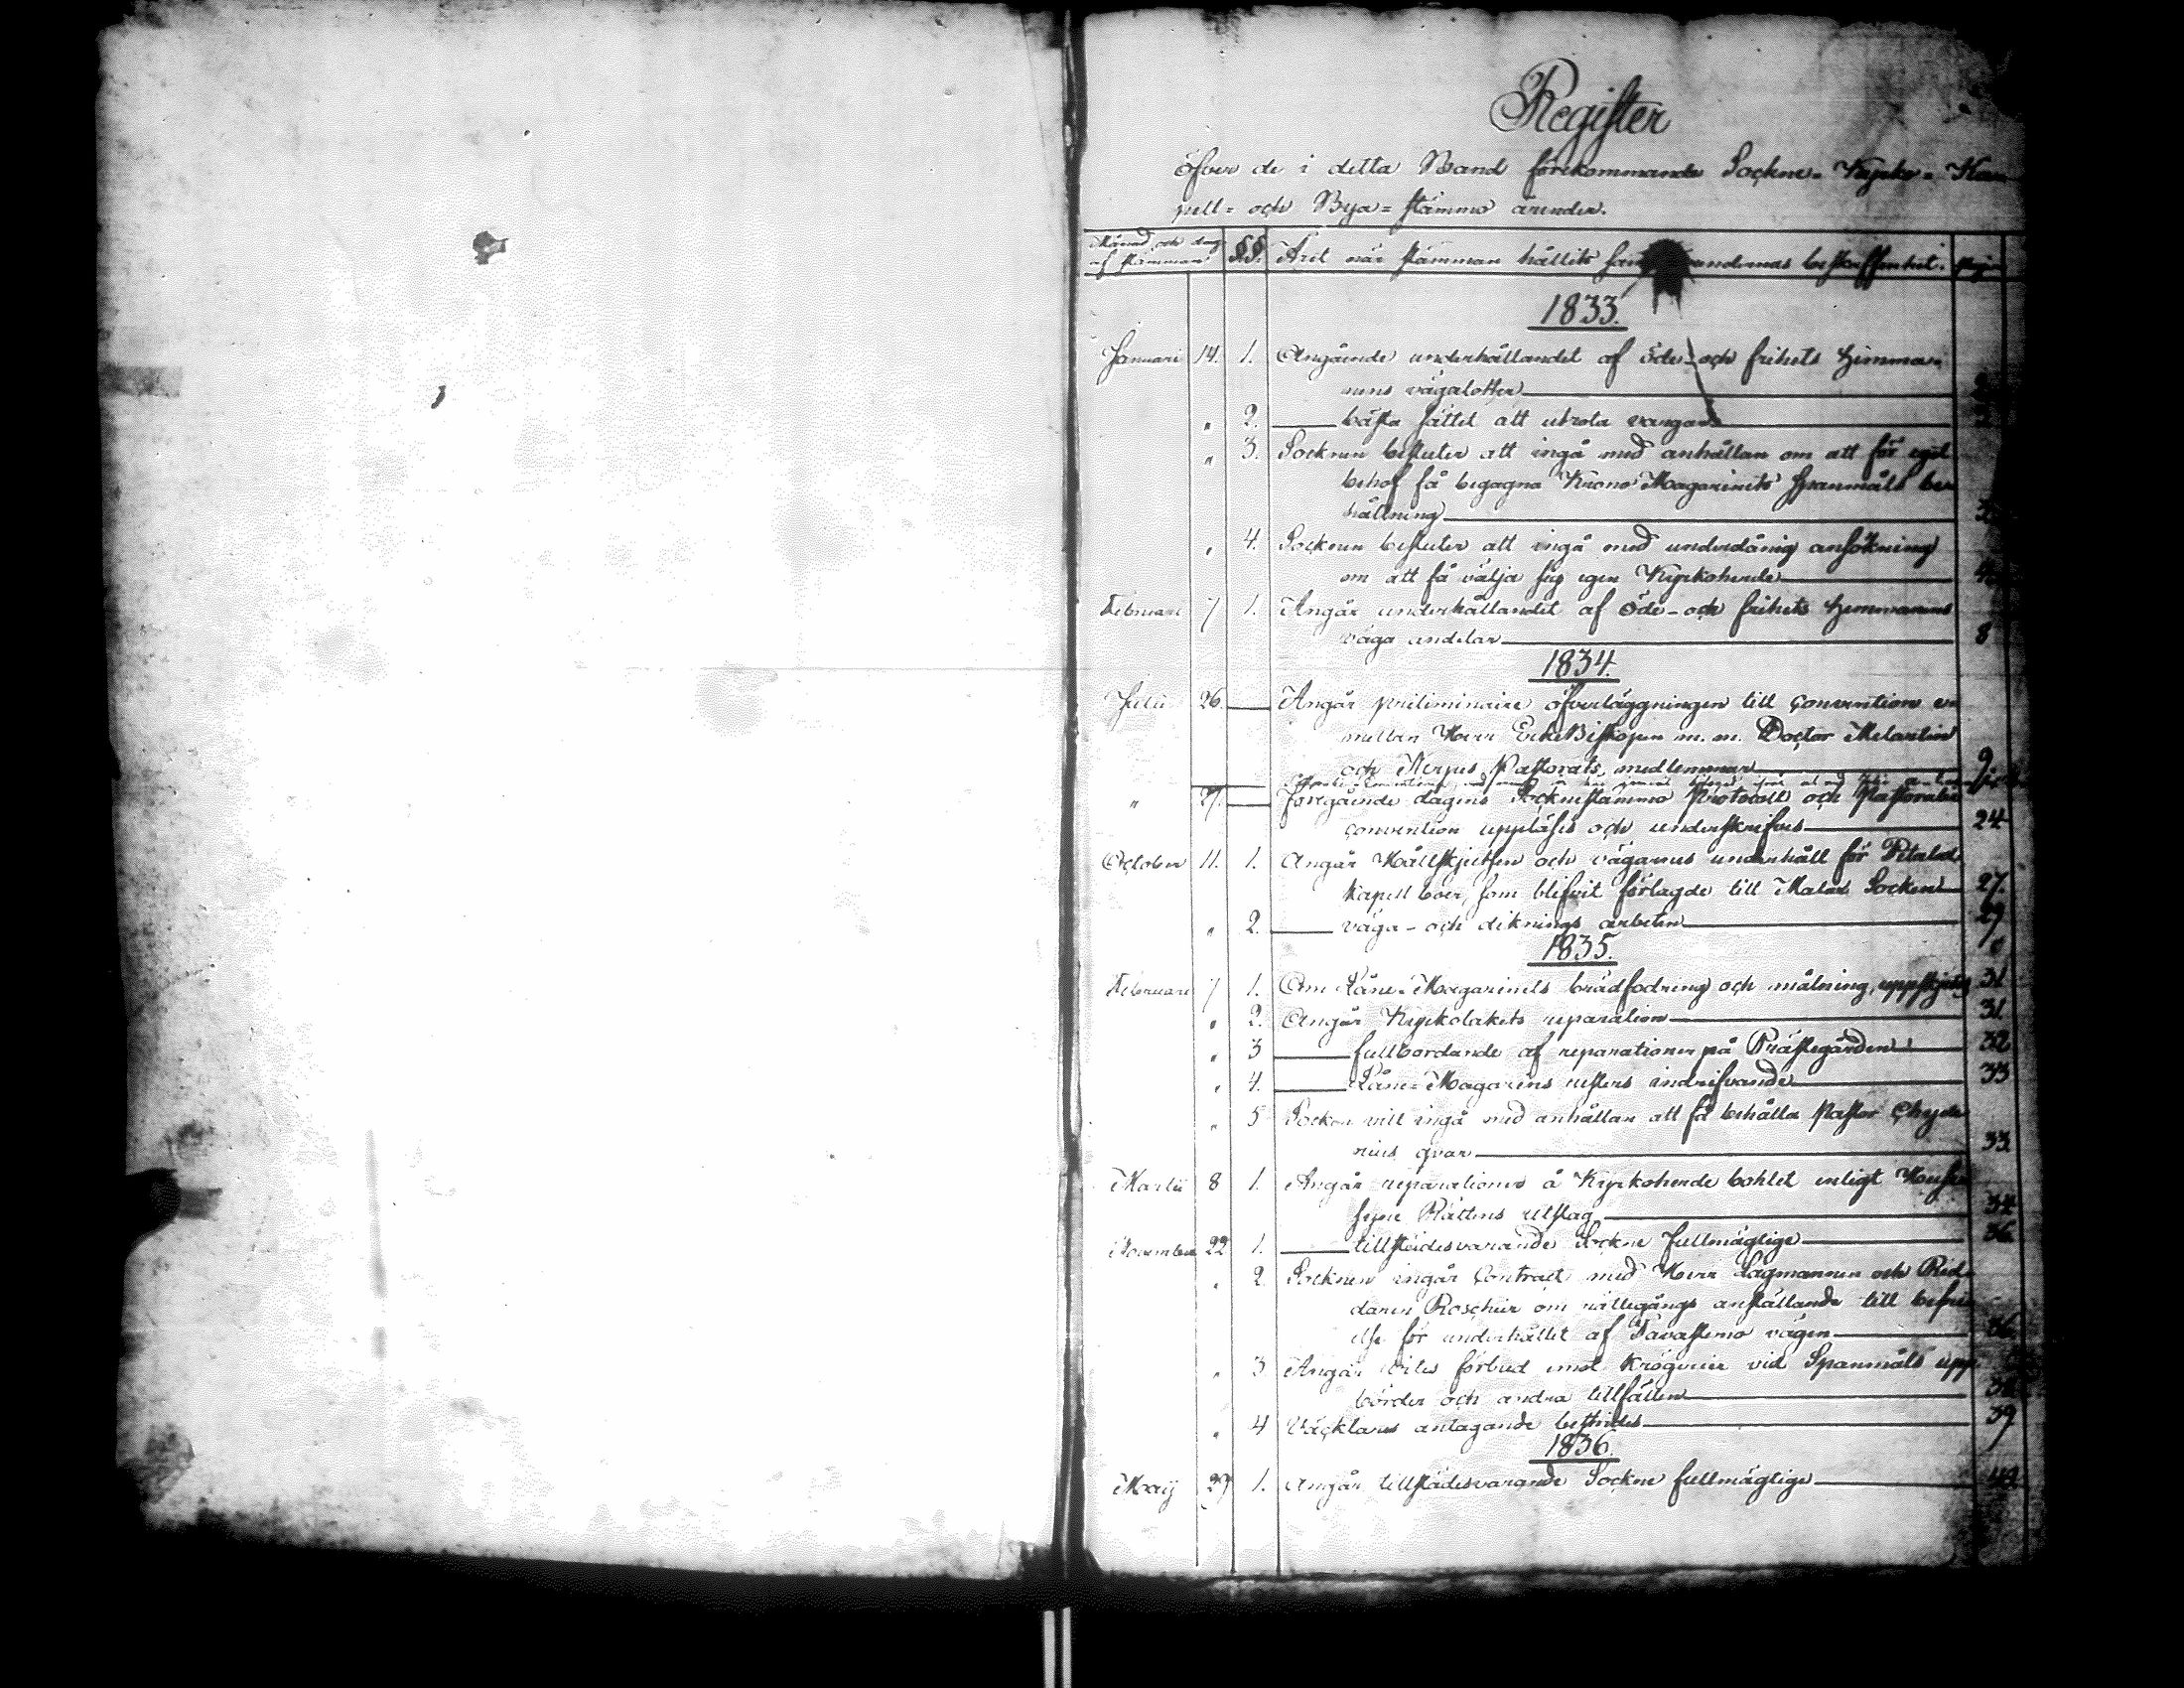 Register
öfver de i detta Band förekommande Sockne- Kyrko- Ka-
pell- och Bya-stämmo ärender.
Månad och dag af stämman §§. Året när stämman hållits samt ärendernas beskaffenhet.
1833.
Januari 14. 1. Angående underhållandet af öde- och frihets Hemma-
nens vägalotter
" 2. bästa sättet att utrota vargar 
" 3. Socknen besluter att ingå med anhållan om att för eget
behof få begagna Krono Magazinets Spanmåls be-
hållning
" 4. Socknen besluter att ingå med underdånig ansökning
om att få välja sig egen Kyrkoherde 4
Februari 7 1. Angår underhållandet af öde- och frihets Hemmanens
väga andelar 8
1834.
Julii 26. Angår preliminaire öfverläggningen till Convention e-
mellan Herr ErkeBiskopen m. m. Doctor Melartin
och Pastorats medlemmar 9
" 27. Föregående dagens Socknestämmo Protocoll och Pastoratets
convention upplästes och underskrifves 24
October 11. 1. Angår Hållskjutsen och vägarnes underhåll för Petalax
Kapell boer, som blifvit förlagde till Malax Socken 27.
" 2. väga- och diknings arbeten 29
1835.
Februari 7 1. Om Låne-Magazinets brädfodring och målning, 31
" 2. Angår Kyrkotakets reparation 31
" 3 fullbordande af reparationer på Prästegården 32
" 4. Låne-Magazins resters indrifvande 33
" 5 Socken vill ingå med anhållan att få behålla Pastor Chyde-
nius qvar 33
Martii 8 1. Angår reparationer å Kyrkoherde bohlet enligt Huse-
syne Rättens utslag 34
November 22 1. tillstädesvarande Sockne fullmägtige 36
" 2. Socknen ingår Contract med Herr Lagmannen och Rid-
daren Roschier om rättegångs anställande till befri-
else för underhållet af Tavastmo vägen 36
" 3 Angår vites förbud emot Krögerier vid Spanmåls upp-
börder och andra tillfällen 38
" 4 antagande bestrides 39
1836.
Maij 29 1. Angår tillstädesvarande Sockne fullmägtige